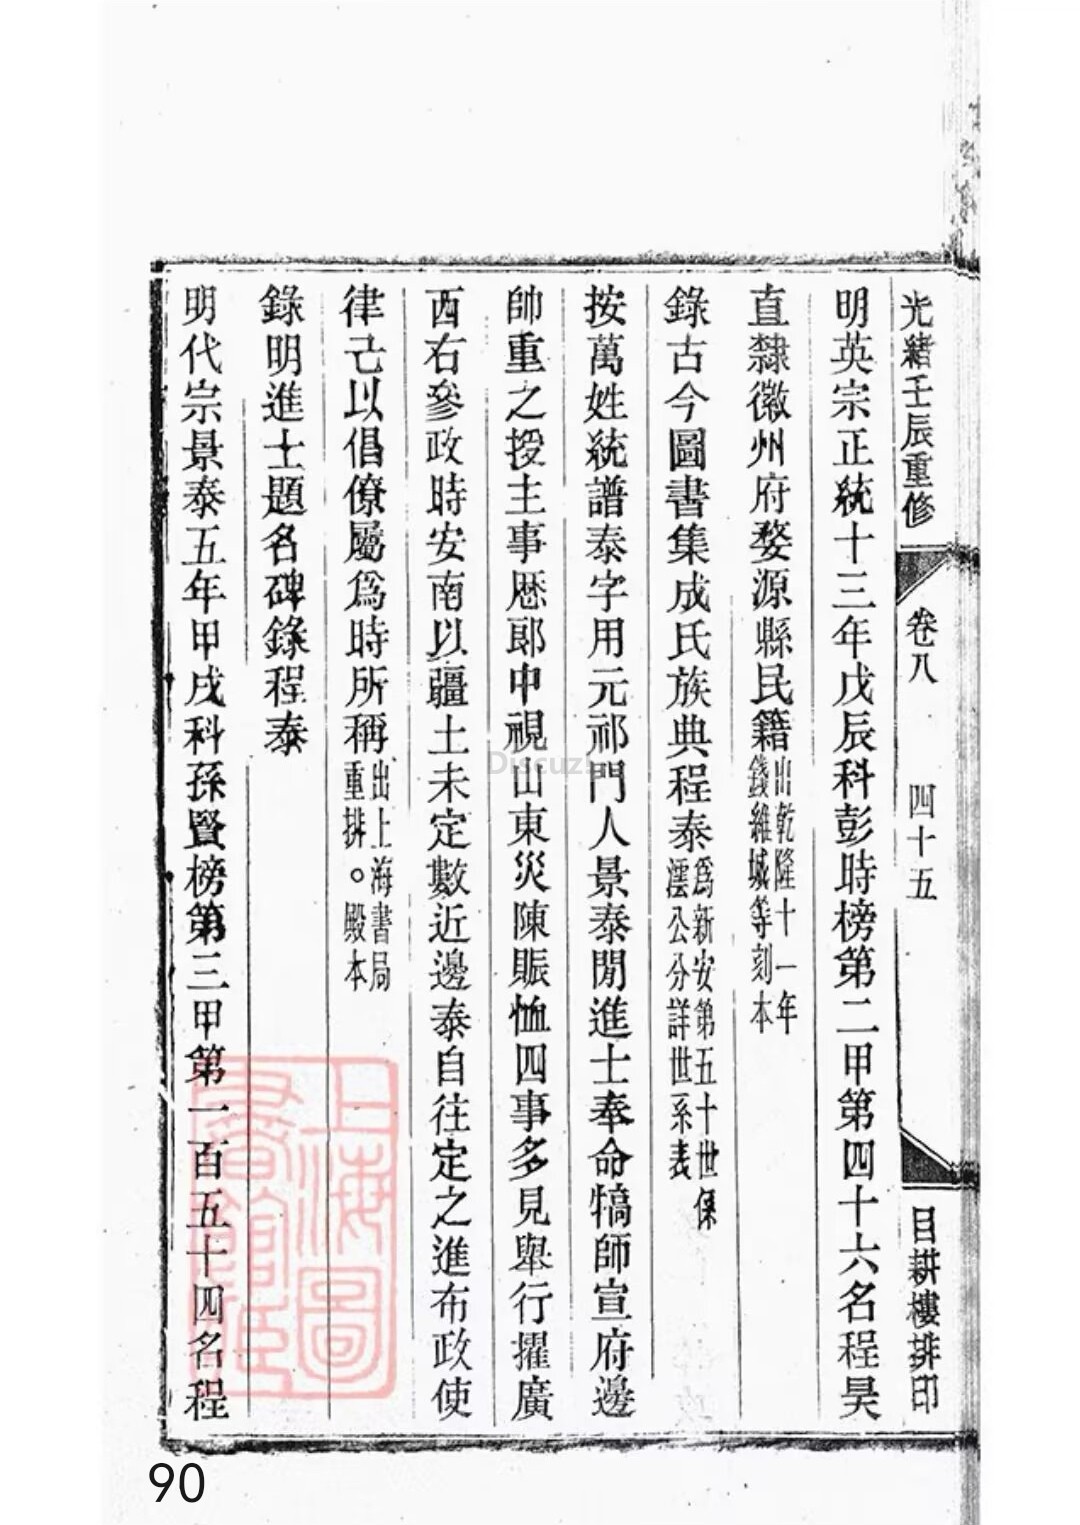 光緒壬辰重修
卷八
四十五
目耕樓排印
明英宗正統十三年戊辰科彭時榜第二甲第四十六名程昊
直隸徽州府婺源縣民籍出乾隆十一年
錢維城等刻本
錄古今圖書集成氏族典程泰為新安第五十世係
澐公分詳世系表
按萬姓統譜泰字用元祁門人景泰閒進士奉命犒師宣府邊
帥重之授主事歷郎中視山東災陳賑恤四事多見舉行擢廣
西右參政時安南以疆土未定數近邊泰自往定之進布政使
律己以倡僚屬為時所稱出上海書局
重排。殿本
錄明進士題名碑錄程泰
明代宗景泰五年甲戌科孫賢榜第三甲第一百五十四名程
上海圖
書館藏
Discuz!
90